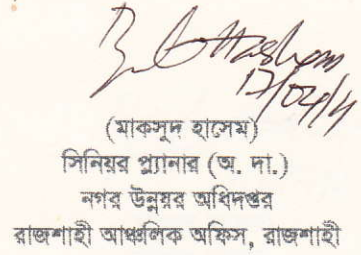 17/04/11
(মাকসুদ হাসেম)
সিনিয়র প্ল্যানার (অ. দা.)
নগর উন্নয়ন অধিদপ্তর
রাজশাহী আঞ্চলিক অফিস, রাজশাহী